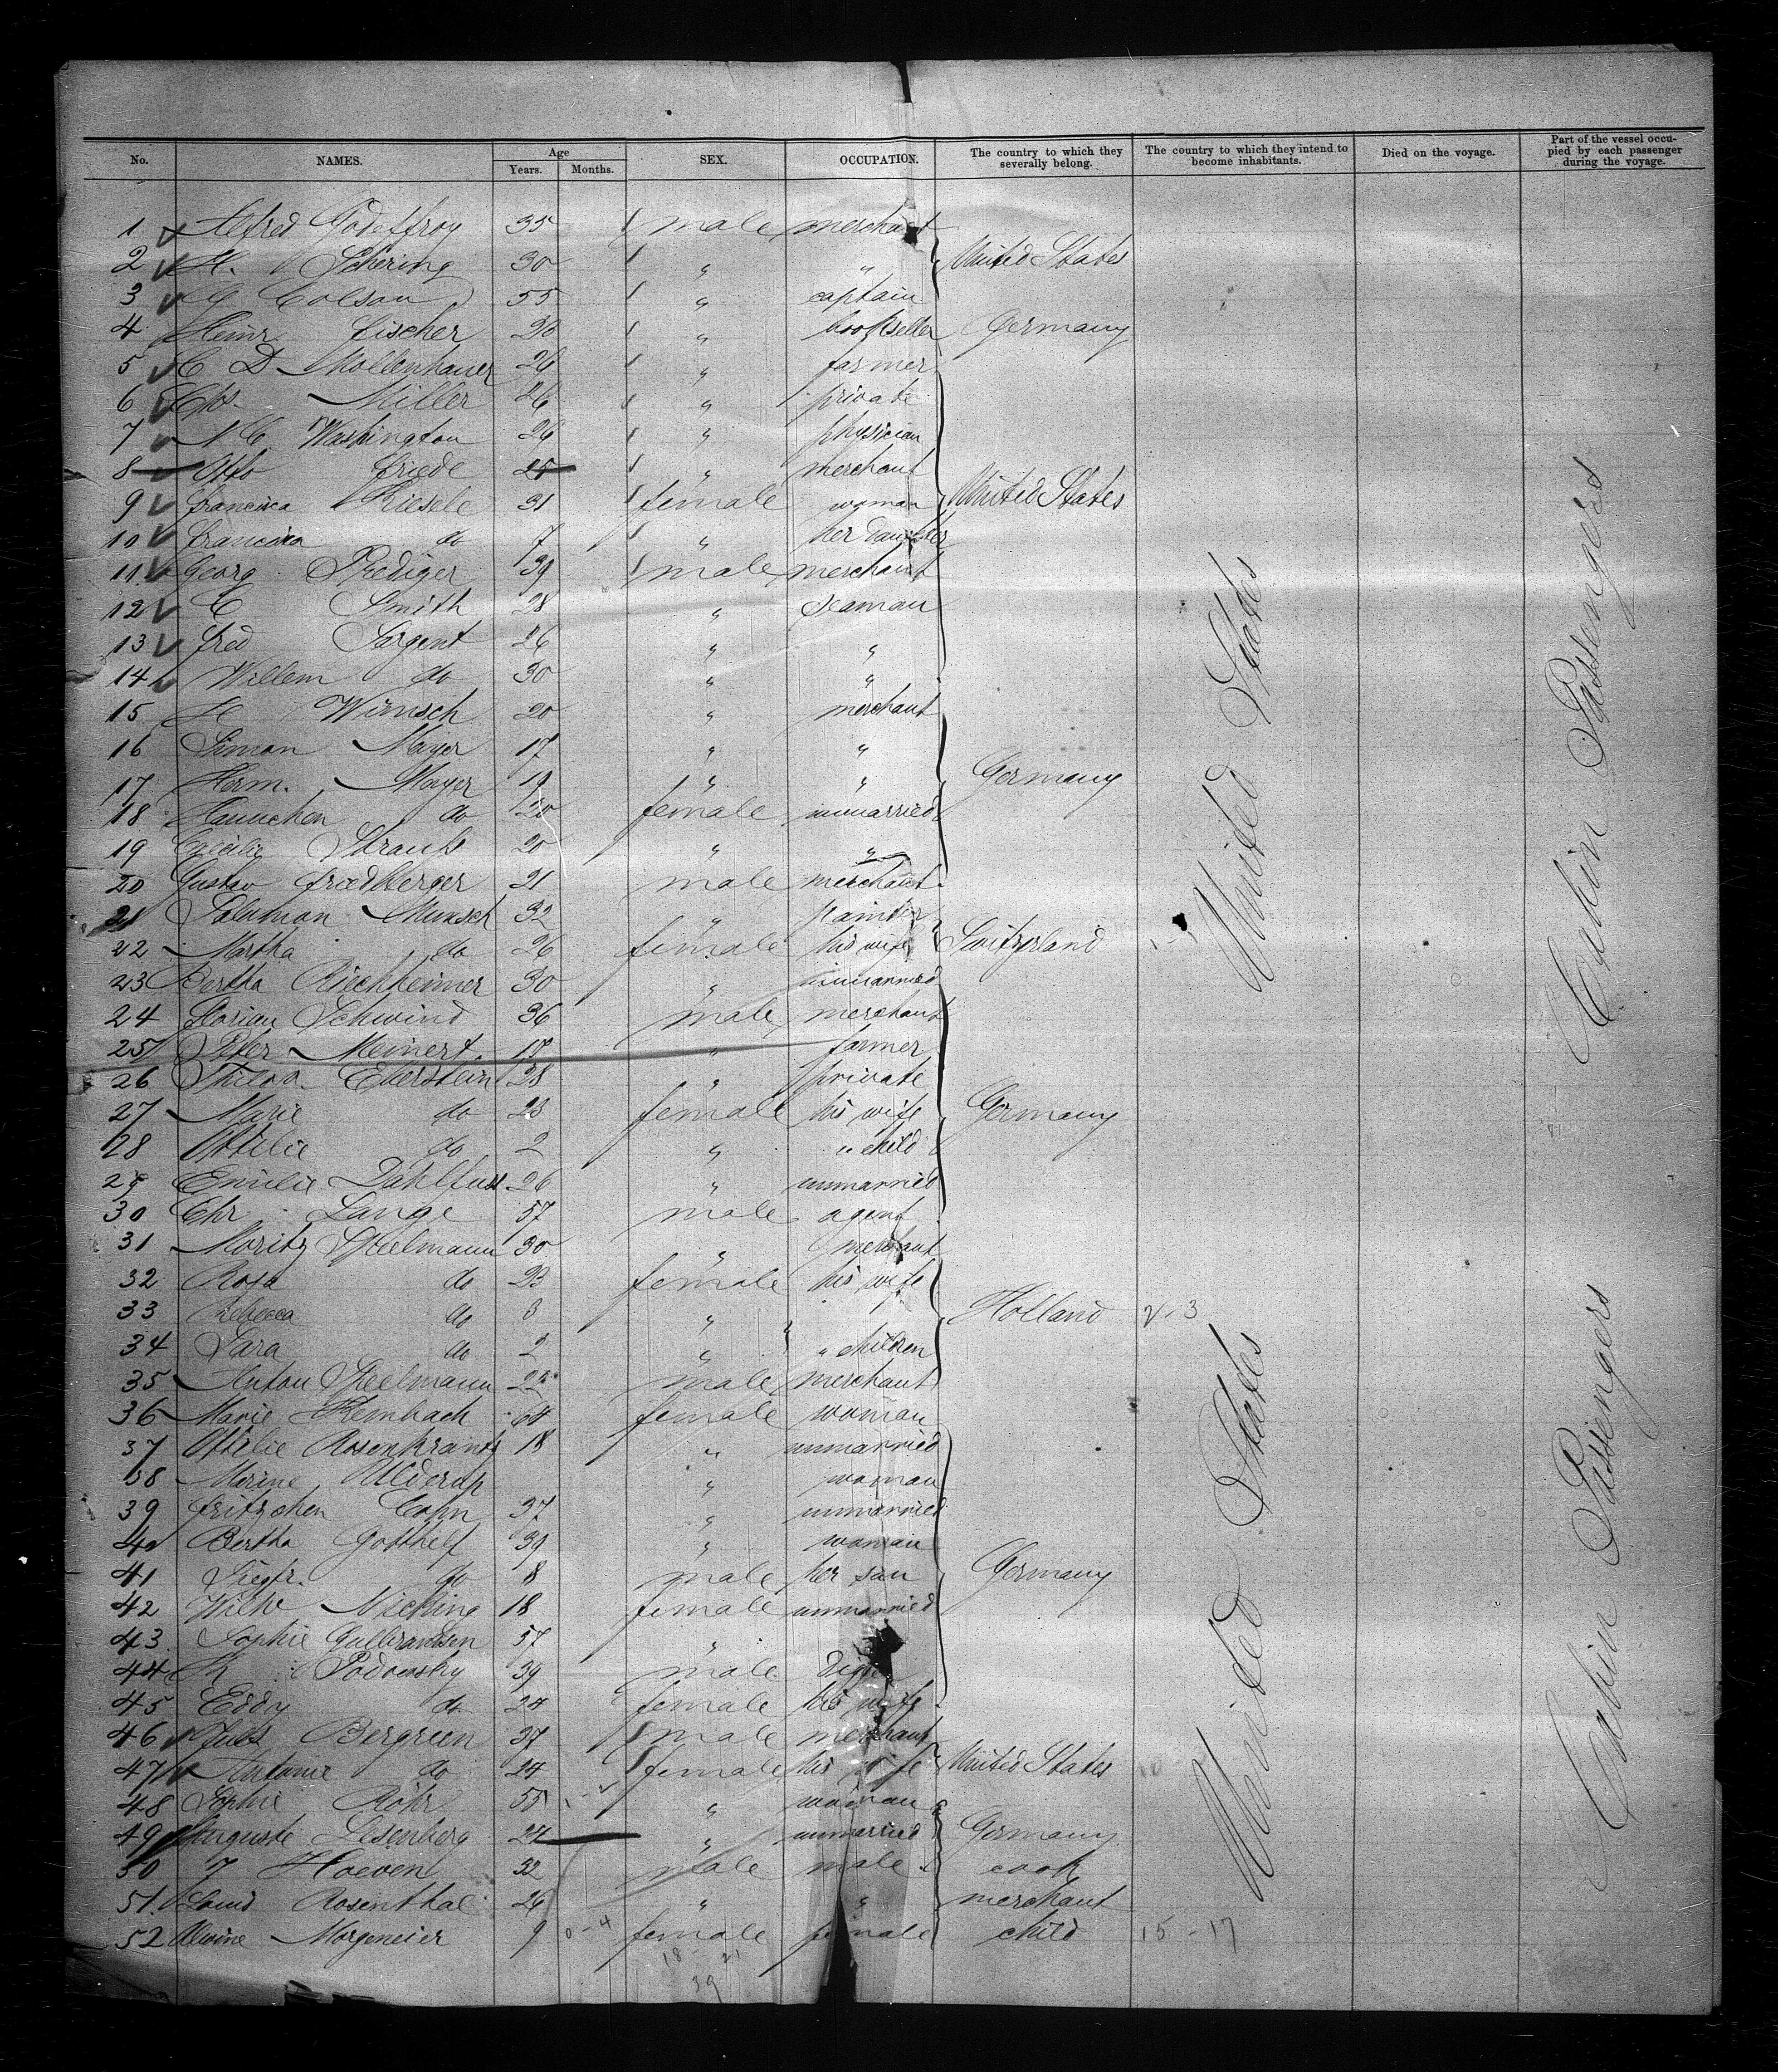 No. NAMES. Age Years. Months. SEX. OCCUPATION. The country to which they severally belong. The country to which they intend to become inhabitants. Died on the voyage. Part of the vessel occupied by each passenger during the voyage.
1 Alfred Godeffroy 35 male merchant
2 H. Schering 30 " " United States
3 G Colsan 55 " captain
4 Heinr Fischer " bookseller Germany
5 C D Mollenhauer 26 " farmer
6 Chs. Miller 26 " private
7 Washington 26 " physician
8 Otto Friede 25 " merchant
9 Francisca Kiesele 31 female woman United States
10 Francisca do 7 " her daughter
11 Georg Prediger 39 male merchant
12 C Smith 28 " Seaman
13 Fred Sargent 26 " "
14 Willem do 30 " "
15 H Wünsch 20 " merchant
16 Simon Mayer 17 " "
17 Herm. Mayer 19 " " Germany
18 Hannchen do 20 female unmarried
19 Cäcilie Strauß 20 " "
20 Gustav Friedberger 21 male merchant
21 Salomon Munsch 32 " painter
22 Martha do 26 female his wife Switzerland
23 Bertha Riechheimer 30 " unmarried
24 Florian Schwind 36 male merchant
25 Peter Meinert " farmer
26 Eberstein 28 " private
27 Marie do 23 female his wife Germany
28 Ottilie do 2 " " child
29 Emilie Dahlfuss 26 " unmarried
30 Chr. Lange 57 male agent
31 Moritz Speelmann 30 " merchant
32 Rosa do 23 female his wife
33 Rebecca do 3 " Holland
34 Sara do 2 " " children
35 Anton Speelmann male merchant
36 Marie Rembach 64 female woman
37 Ottilie Rosenkrantz 18 " unmarried
38 Marine Ulderup " woman
39 Fritzchen Cohn 37 " unmarried
40 Bertha Gotthelf 39 " woman
41 Siegfr. do 8 male her son Germany
42 Wilhe 18 female unmarried
43 Sophie Gulbrandsen 57 "
44 Podowsky 39 male
45 Eddy do 24 female his wife
46 Juls Bergreen 37 male merchant
47 Antonie do 24 female his wife United States
48 Sophie Röhr 55 " woman
49 Auguste Lesenberg 24 " unmarried Germany
50 J Hoeven 32 male male cook
51. Louis Rosenthal 26 " " merchant
52 Alwine Morgeneier 9 0-4 female female child 15-17
18 21
39
United States
United States
Cabin Passengers
Cabin Passengers